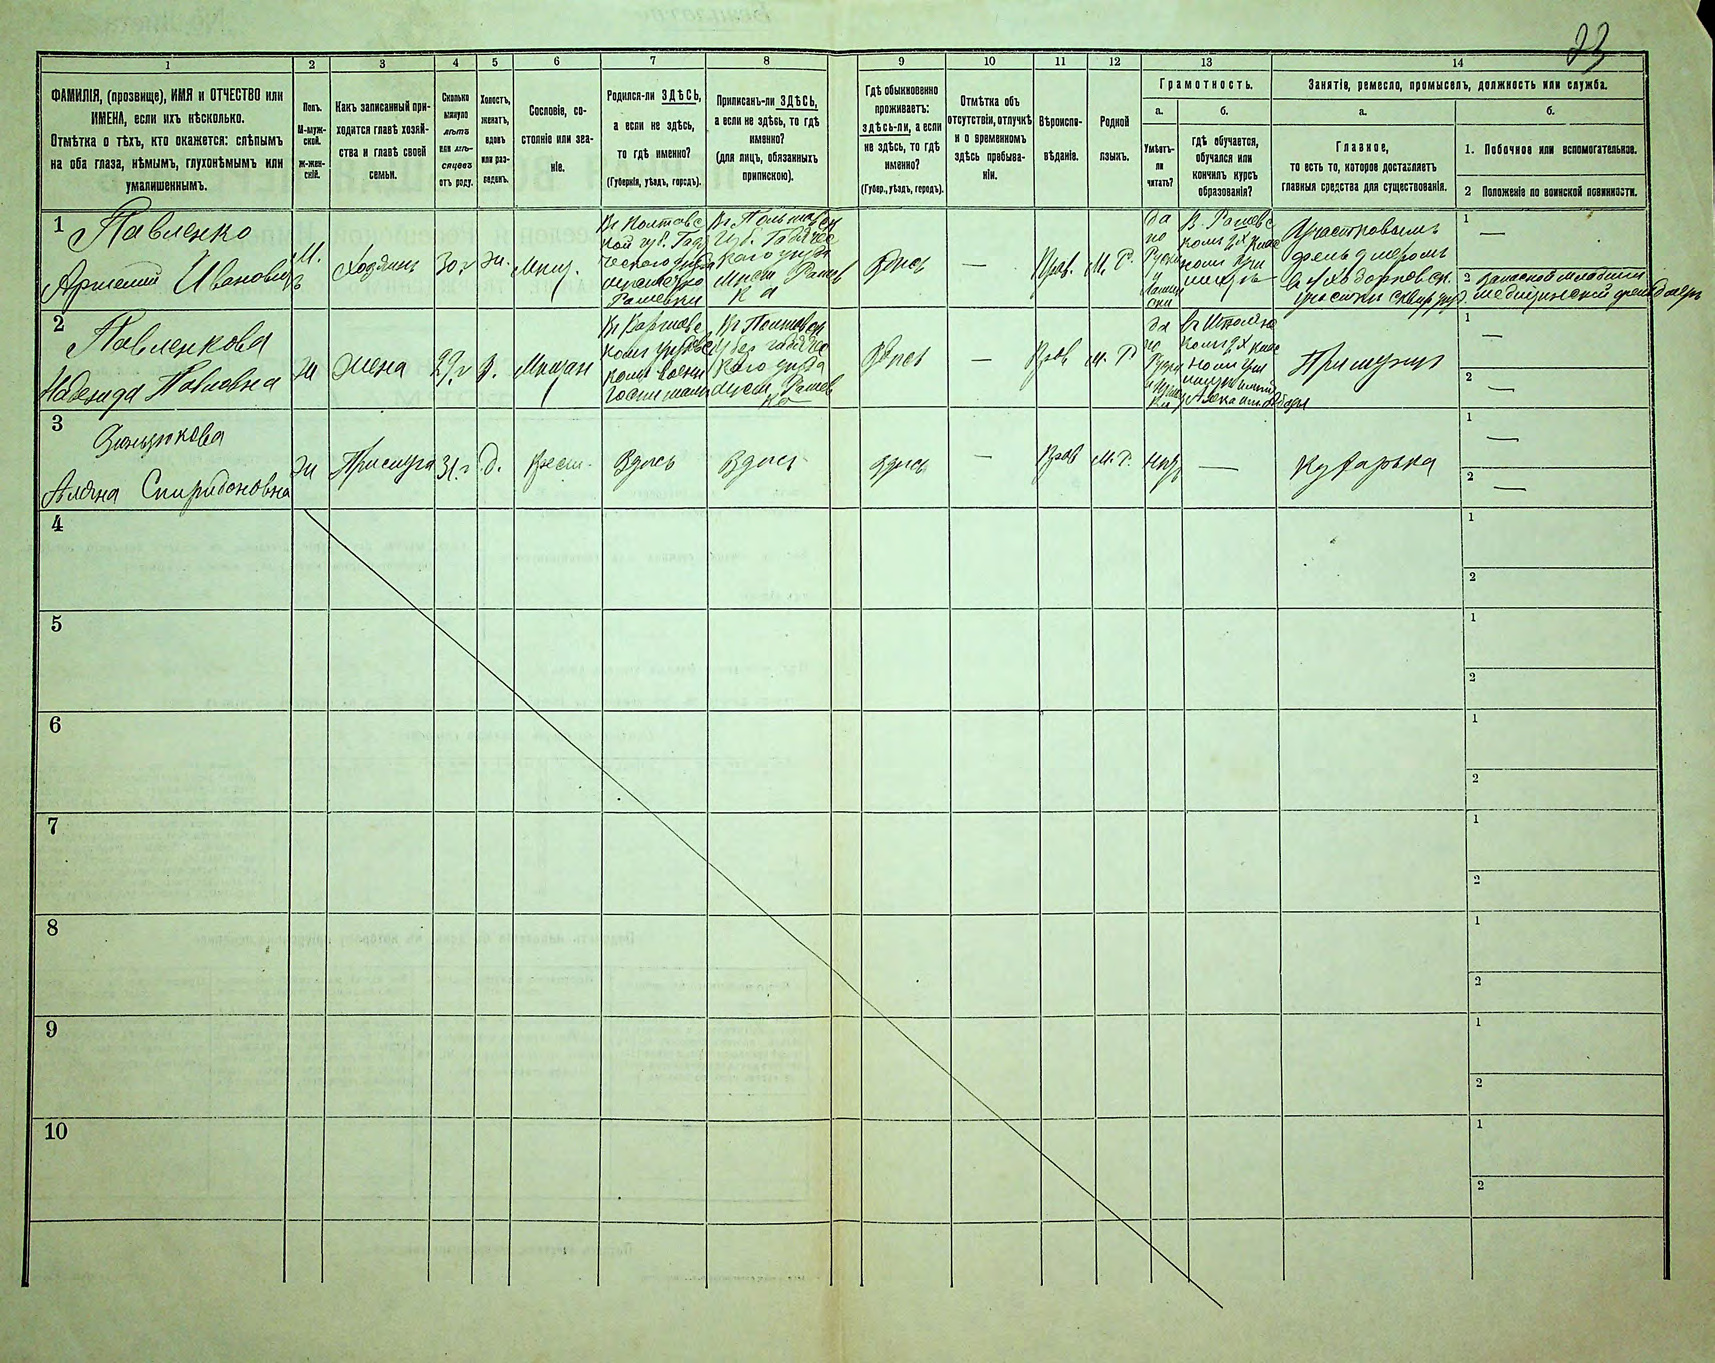 23
1 2 3 4 5 6 7 8 9 10 11 12 13 14
ФАМИЛІЯ, (прозвище), ИМЯ и ОТЧЕСТВО или
ИМЕНА, если ихъ нѣсколько.
Отмѣтка о тѣхъ, кто окажется: слѣпымъ
на оба глаза, нѣмымъ, глухонѣмымъ или
умалишеннымъ.
Полъ.
М-муж-
ской.
Ж-жен-
скій.
Какъ записанный при-
ходится главѣ хозяй-
ства и главѣ своей
семьи.
Сколько
минуло
лѣтъ
или мѣ-
сяцевъ
отъ роду.
Холостъ,
женатъ,
вдовъ
или раз-
веденъ.
Сословіе, со-
стояніе или зва-
ніе.
Родился-ли ЗДѢСЬ,
а если не здѣсь,
то гдѣ именно?
(Губернія, уѣздъ, городъ).
Приписанъ-ли ЗДѢСЬ,
а если не здѣсь, то гдѣ
именно?
(для лицъ, обязанныхъ
припискою).
Гдѣ обыкновенно
проживаетъ:
здѣсь-ли, а если
не здѣсь, то гдѣ
именно?
(Губер., уѣздъ, городъ).
Отмѣтка объ
отсутствіи, отлучкѣ
и о временномъ
здѣсь пребыва-
ніи.
Вѣроиспо-
вѣданіе.
Родной
языкъ.
Грамотность.
а.
Умѣетъ-
ли
читать?
б.
гдѣ обучается,
обучался или
кончилъ курсъ
образованія?
Занятія, ремесло, промыселъ, должность или служба.
а.
Главное,
то есть то, которое доставляетъ
главныя средства для существованія.
б.
1. Побочное или вспомогательное.
2 Положеніе по воинской повинности.
1
Павленко
Ивановичъ
М.
Хозяинъ
30 г
Жи.
Мѣщ.
Въ Полтавс
кой губ. Гадя
ческого уѣзда
Рашевки
Въ Полтавск
Губ. Гадяче
кого уѣзда
Рашев
ка
Здѣсь
—
Прав.
М. Р.
да
по
Руски
и
Латин
ски
В. Рашевс
комъ 2х клас
номъ Учи
лищѣ
Участковымъ
фельдшеромъ
1 —
2 Запасной младшій
медицинскій фельдшеръ
2
Павленкова
Надежда Павловна
Жи
Жена
27. г
З.
Мѣщан
Въ Полтавск
Губер Гадяче
кого уѣзда
Рашев
ка
Здѣсь
—
Прав
М. Р
да
по
Руски
комъ 2х клас
номъ учи
лищѣ
При мужѣ
1 —
2 —
3
Спиридоновна
Жи
Прислуга
31. г
Д.
Крест.
Здѣсь
Здѣсь
Здѣсь
—
Прав
М. Р.
Нѣтъ
—
Кухарька
1 —
2 —
4
1
2
5
1
2
6
1
2
7
1
2
8
1
2
9
1
2
10
1
2